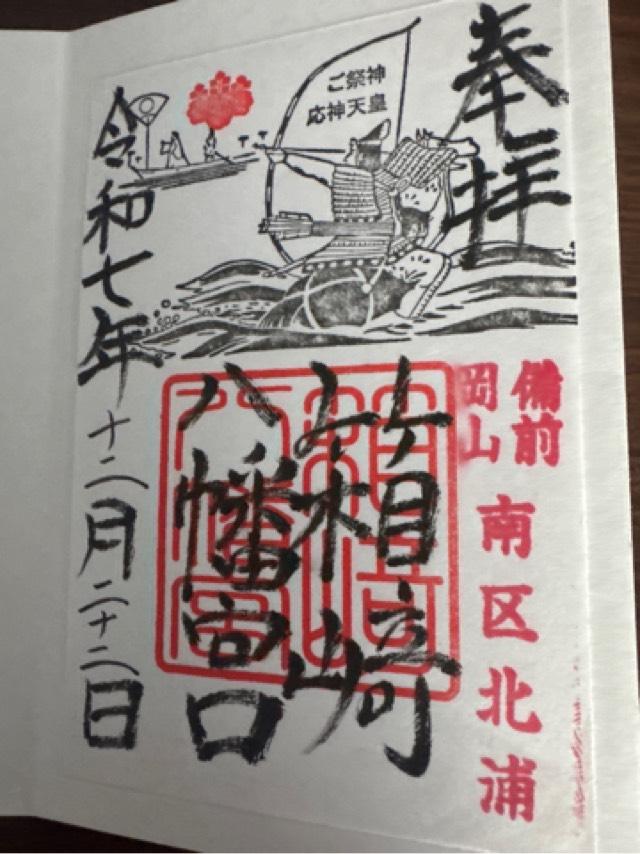 奉拝
ご祭神
応神天皇
備前
岡山
南区北浦
箱崎
八幡宮
令和七年十二月二十二日